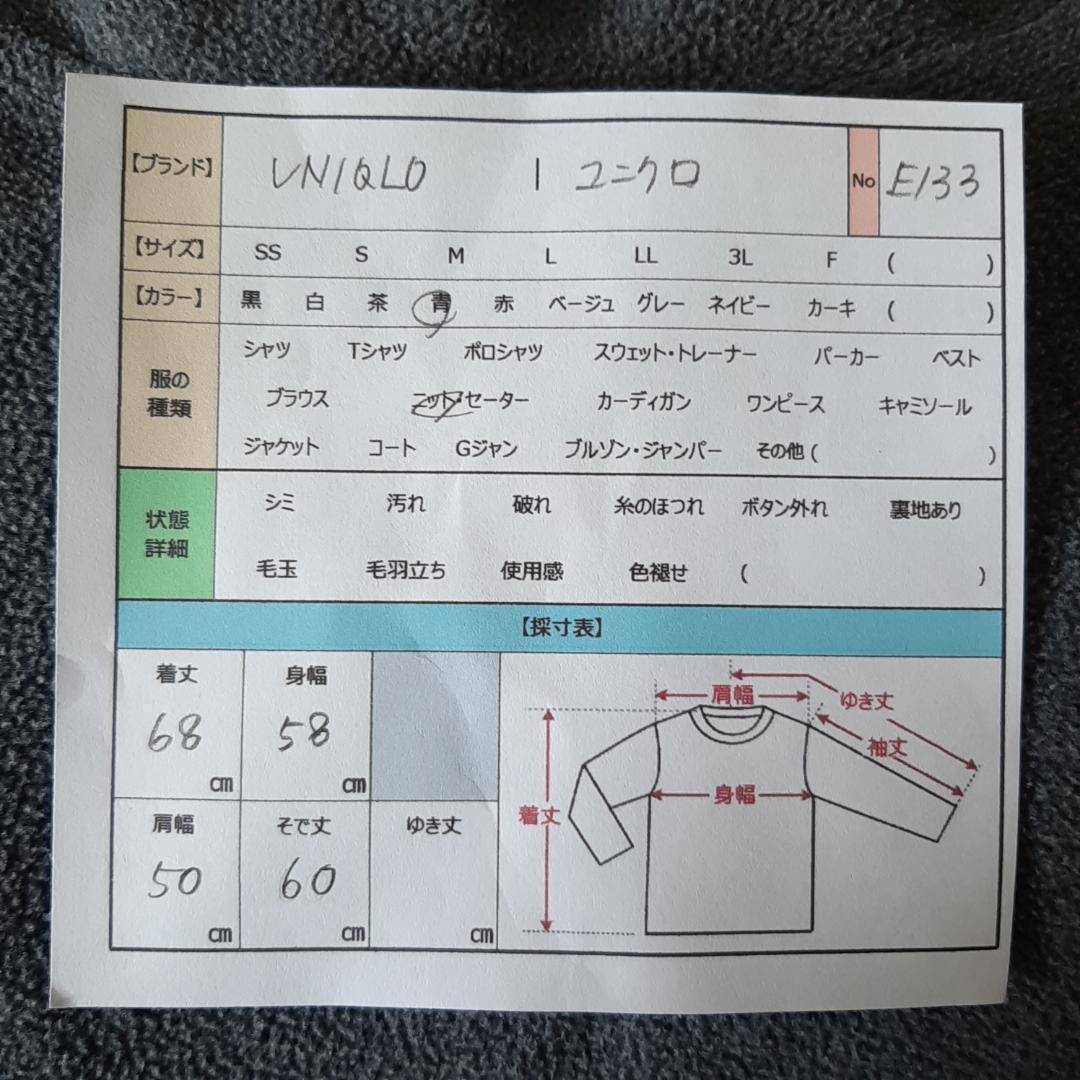 【ブランド】 UNIQLO | ユニクロ No E133
【サイズ】 SS S M L LL 3L F ( )
【カラー】 黒 白 茶 青 赤 ベージュ グレー ネイビー カーキ ( )
服の
種類
シャツ Tシャツ ポロシャツ スウェット・トレーナー パーカー ベスト
ブラウス ニット・セーター カーディガン ワンピース キャミソール
ジャケット コート Gジャン ブルゾン・ジャンパー その他 ( )
状態
詳細
シミ 汚れ 破れ 糸のほつれ ボタン外れ 裏地あり
毛玉 毛羽立ち 使用感 色褪せ ( )
【採寸表】
着丈 身幅
68 58
cm cm
肩幅 そで丈 ゆき丈
50 60
cm cm cm
肩幅
ゆき丈
袖丈
身幅
着丈